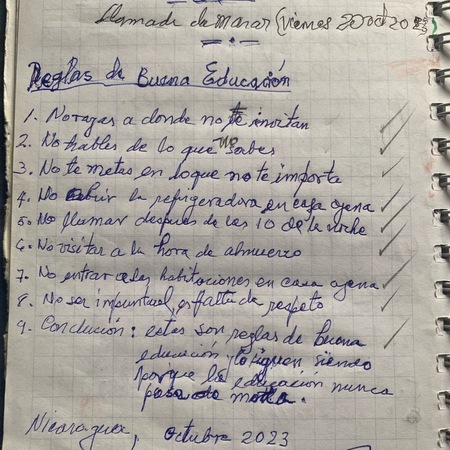 Llamada de Manar (viernes 20 oct 2023
Reglas de Buena Educación
1. No vayas a donde no te invitan
2. No hables de lo que no sabes
3. No te metas en lo que no te importa
4. No abrir la refrigeradora en casa agena
5. No llamar despues de las 10 de la noche
6. No visitar a la hora de almuerzo
7. No entrar a las habitaciones en casa agena
8. No ser impuntual, es falta de respeto
9. Conclución: estas son reglas de buena
educación y lo siguen siendo
porque la educación nunca
pasa de moda.
Nicaragua, octubre 2023